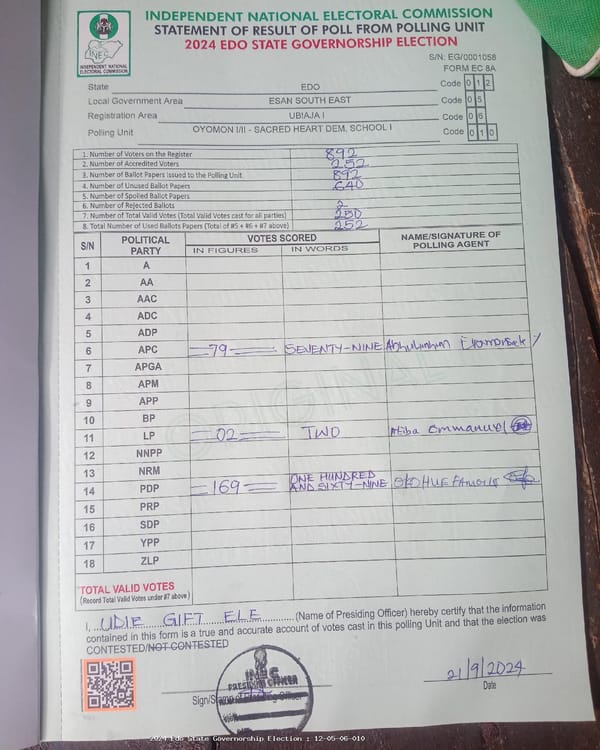 INDEPENDENT NATIONAL ELECTORAL COMMISSION
STATEMENT OF RESULT OF POLL FROM POLLING UNIT
2024 EDO STATE GOVERNORSHIP ELECTION
INEC
INDEPENDENT NATIONAL
ELECTORAL COMMISSION
S/N: EG/0001058
FORM EC 8A
State EDO Code 0 1 2
Local Government Area ESAN SOUTH EAST Code 0 5
Registration Area UBIAJA I Code 0 6
Polling Unit OYOMON I/II - SACRED HEART DEM, SCHOOL I Code 0 1 0
1. Number of Voters on the Register 892
2. Number of Accredited Voters 252
3. Number of Ballot Papers Issued to the Polling Unit 892
4. Number of Unused Ballot Papers 640
5. Number of Spoiled Ballot Papers
6. Number of Rejected Ballots 2
7. Number of Total Valid Votes (Total Valid Votes cast for all parties) 250
8. Total Number of Used Ballots Papers (Total of #5 + #6 + #7 above) 252
S/N POLITICAL PARTY VOTES SCORED NAME/SIGNATURE OF POLLING AGENT
IN FIGURES IN WORDS
1 A
2 AA
3 AAC
4 ADC
5 ADP
6 APC 79 SEVENTY-NINE
7 APGA
8 APM
9 APP
10 BP
11 LP 02 TWO Emmanuel
12 NNPP
13 NRM
14 PDP 169 ONE HUNDRED AND SIXTY-NINE
15 PRP
16 SDP
17 YPP
18 ZLP
ORIGINAL
TOTAL VALID VOTES
(Record Total Valid Votes under #7 above)
I, UDIE GIFT ELE (Name of Presiding Officer) hereby certify that the information
contained in this form is a true and accurate account of votes cast in this polling Unit and that the election was
CONTESTED/NOT CONTESTED
INEC
PRESIDING OFFICER
21/9/2024
Sign/Stamp of Presiding Officer
Date
2024 Edo State Governorship Election : 12-05-06-010